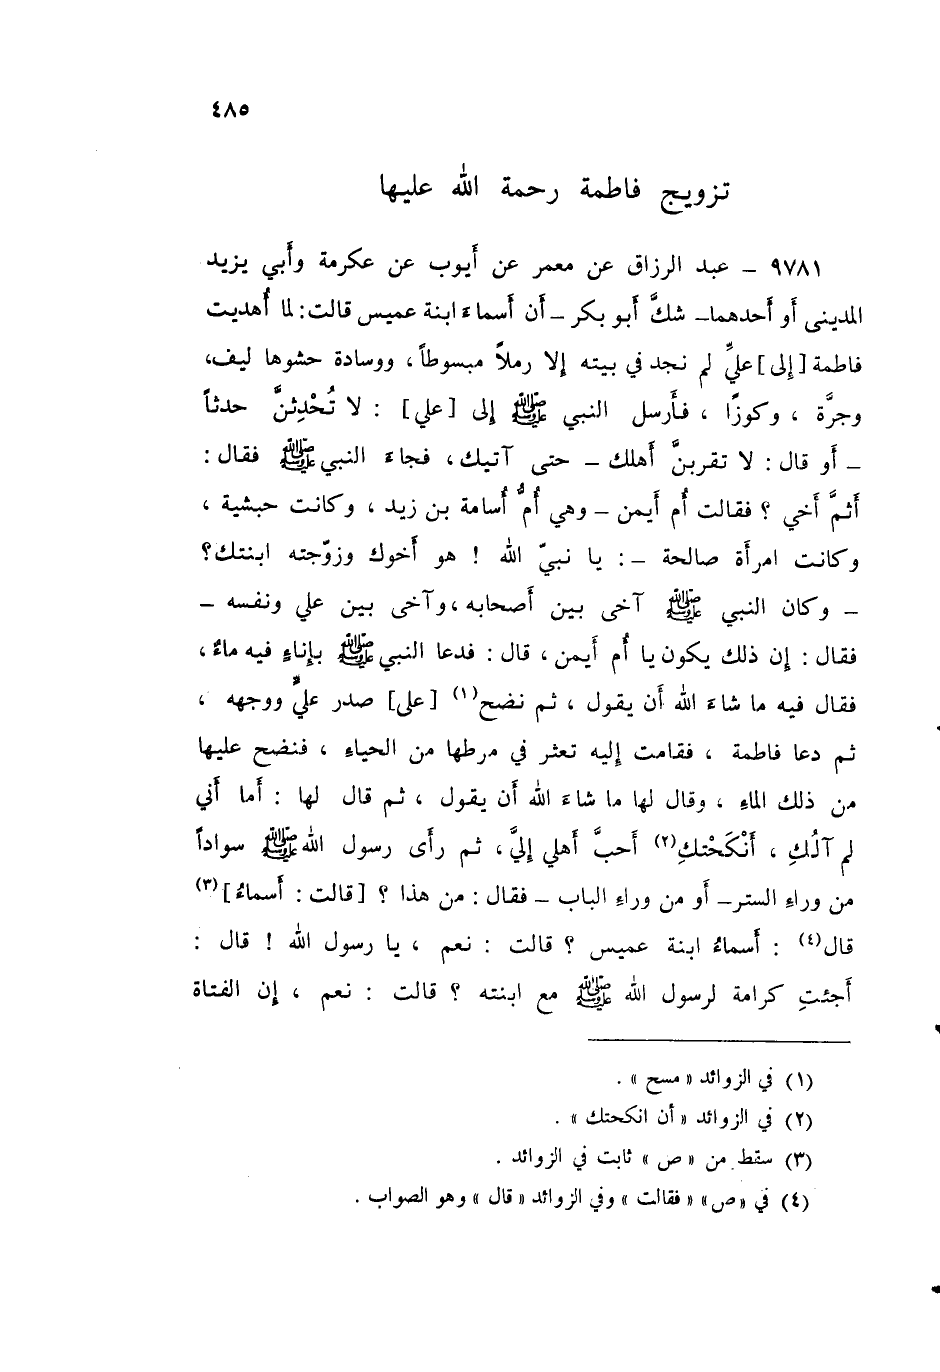 ٤٨٥
تزويج فاطمة رحمة الله عليها
٩٧٨١ – عبد الرزاق عن معمر عن أَيوب عن عكرمة وأَبي يزيد
المديني أَو أَحدهما– شكَّ أَبو بكر – أَن أَسماءَ ابنة عميس قالت: لما أُهديت
فاطمة [إلى] عليٍّ لم نجد في بيته إلا رملاً مبسوطاً، ووسادة حشوها ليف،
وجرَّة ، وكوزًا ، فأَرسل النبي ﷺ إلى [علي] : لا تُحْدِثنَّ حدثاً
– أَو قال : لا تقربنَّ أَهلك – حتى آتيك، فجاءَ النبي ﷺ فقال :
أَثَمَّ أَخي ؟ فقالت أُم أَيمن – وهي أُمُّ أُسامة بن زيد ، وكانت حبشية ،
وكانت امرأَة صالحة – : يا نبيّ الله ! هو أَخوك وزوّجته ابنتك؟
– وكان النبي ﷺ آخى بين أَصحابه، وآخى بين علي ونفسه –
فقال : إِن ذلك يكون يا أُم أَيمن ، قال : فدعا النبي ﷺ بإِناءٍ فيه ماءٌ ،
فقال فيه ما شاءَ الله أَن يقول ، ثم نضح(١) [على] صدر عليٍّ ووجهه ،
ثم دعا فاطمة ، فقامت إِليه تعثر في مرطها من الحياءِ ، فنضح عليها
من ذلك الماءِ ، وقال لها ما شاءَ الله أَن يقول ، ثم قال لها : أَما أَني
لم آلُكِ ، أَنْكَحْتكِ(٢) أَحبَّ أَهلي إِليَّ ، ثم رأَى رسول الله ﷺ سواداً
من وراءِ الستر– أَو من وراءِ الباب – فقال : من هذا ؟ [قالت : أَسماءُ](٣)
قال(٤) : أَسماءُ ابنة عميس ؟ قالت : نعم ، يا رسول الله ! قال :
أَجئتِ كرامة لرسول الله ﷺ مع ابنته ؟ قالت : نعم ، إِن الفتاة
(١) في الزوائد « مسح » .
(٢) في الزوائد « أن انكحتك » .
(٣) سقط من « ص » ثابت في الزوائد .
(٤) في « ص » « فقالت » وفي الزوائد « قال » وهو الصواب .